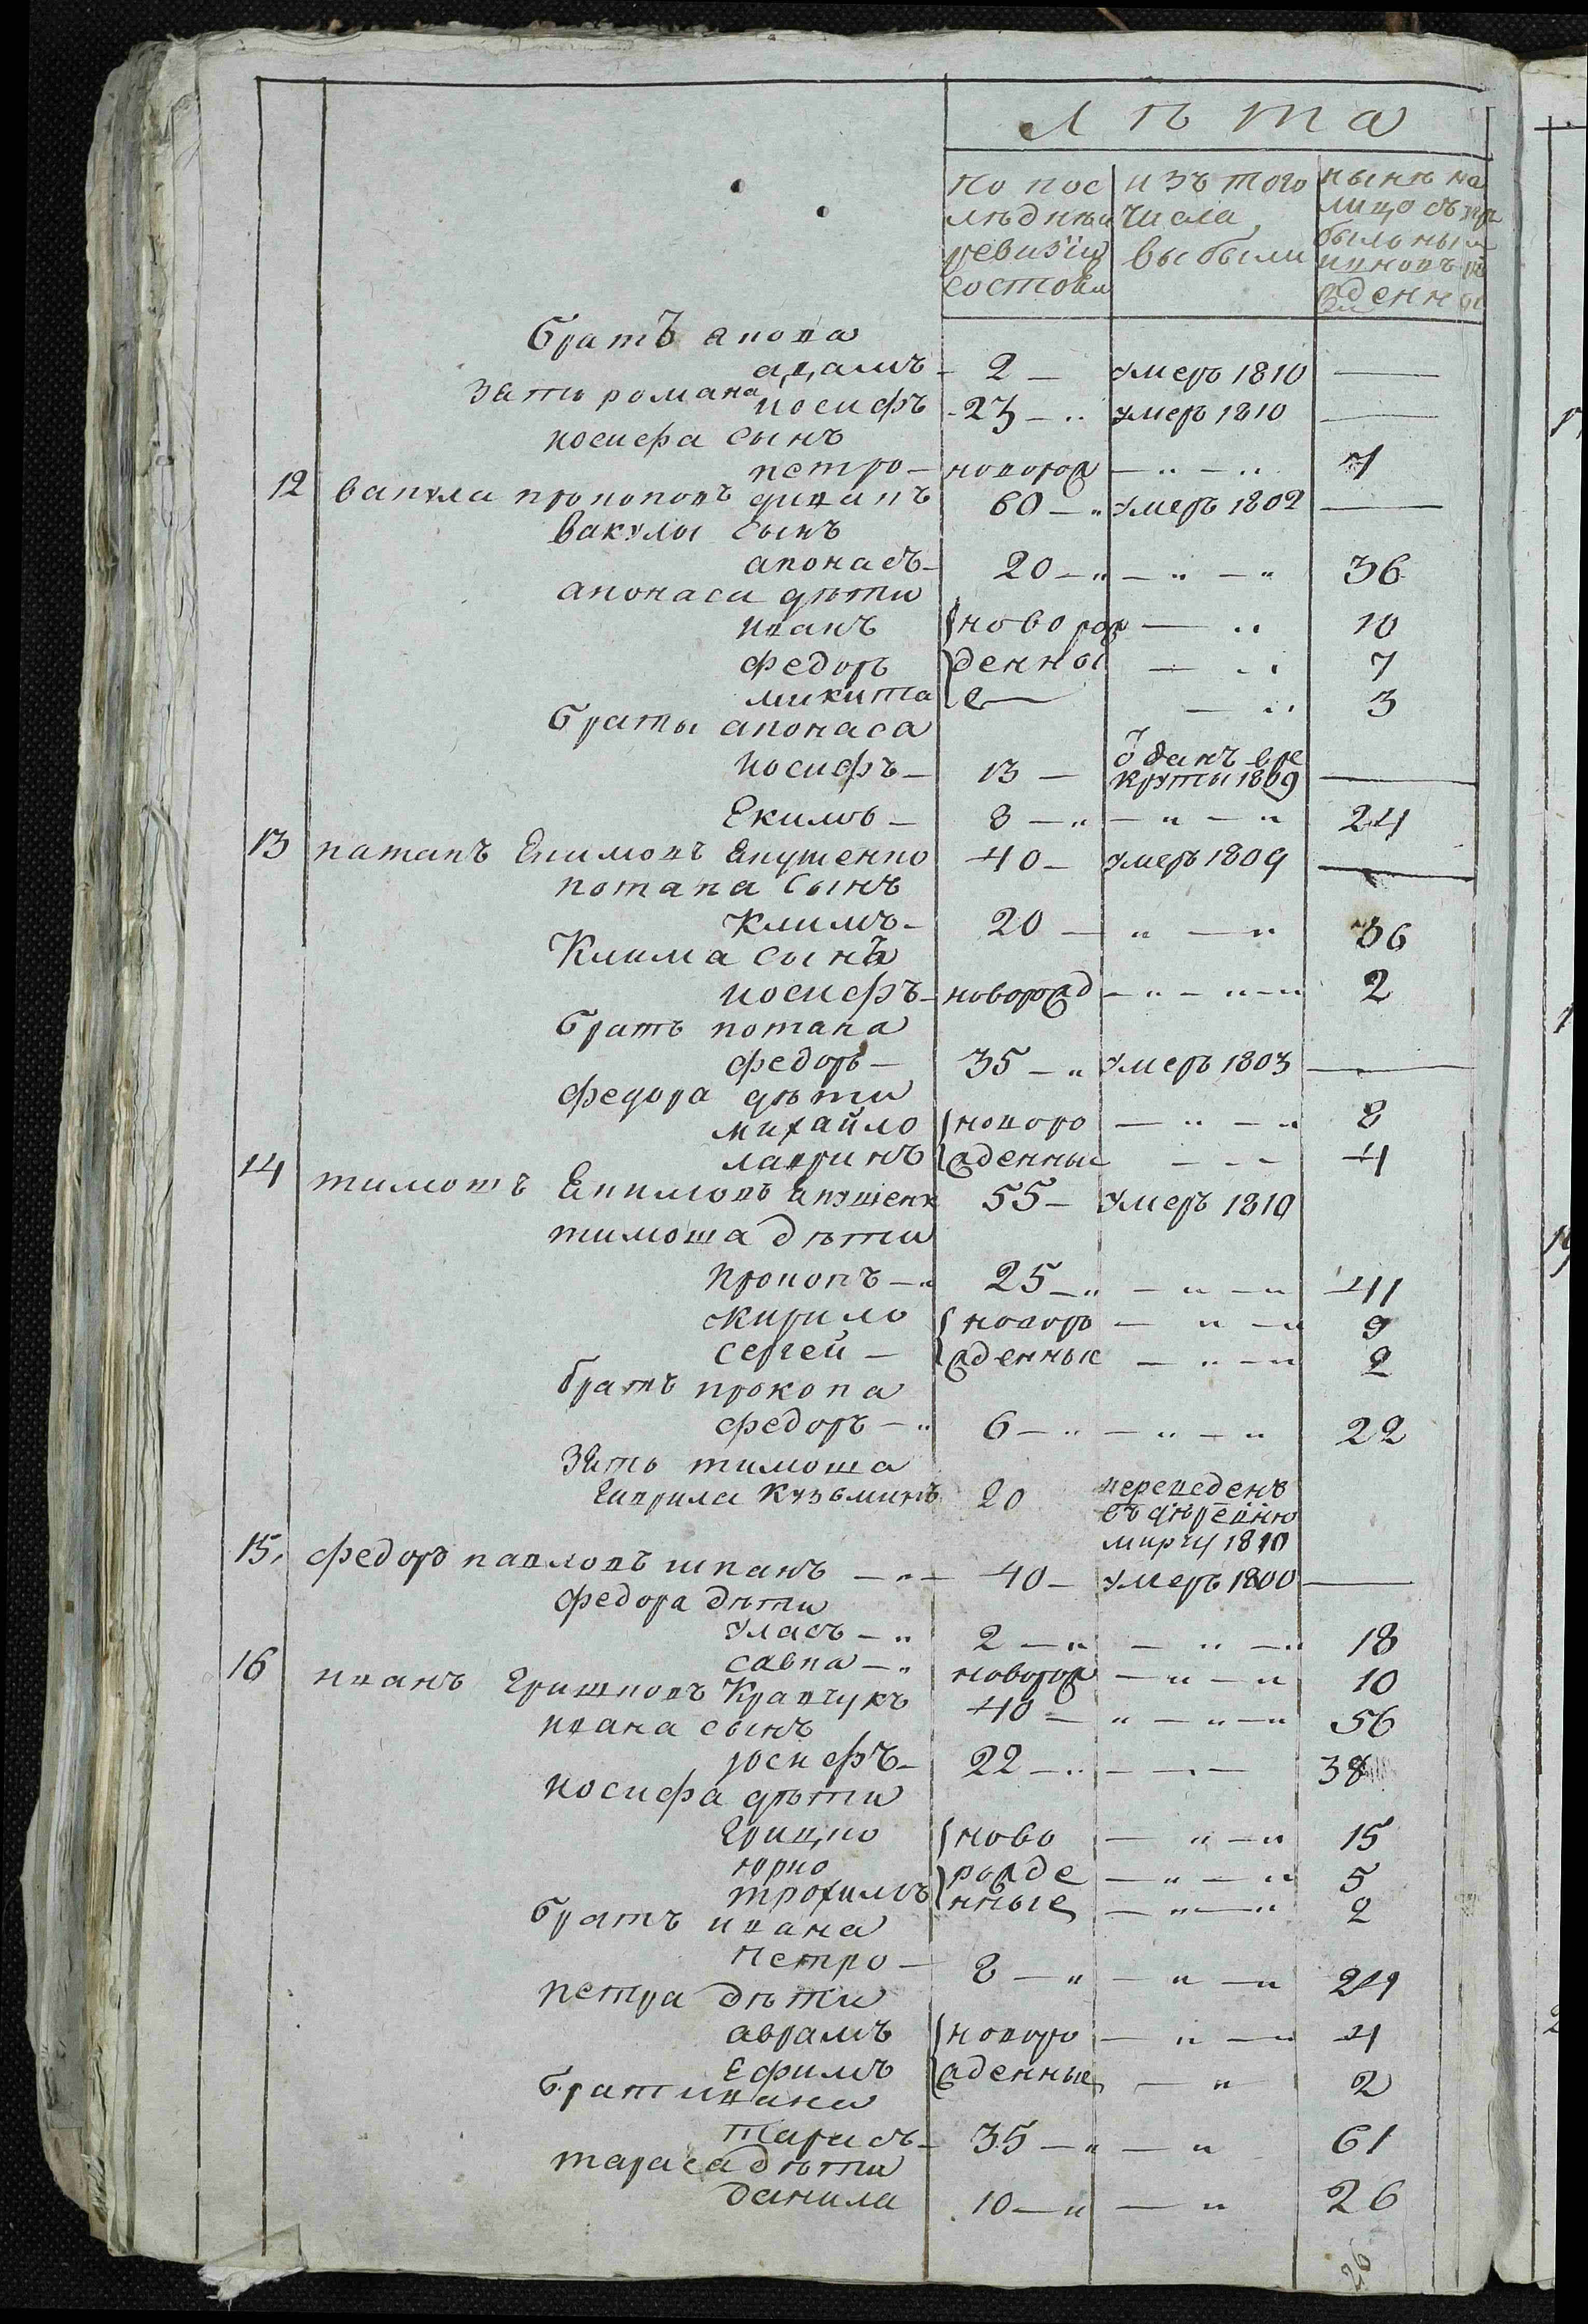 Лѣта
по пос
лѣднѣй
ревизіи
состоял
изъ того
числа
выбыли
нынѣ на
лицо съ пр
былыми
и новъ ро
жденны
братъ
адамъ - 2 - умеръ 1810 —
зять романа
иосифъ - 23 - умеръ 1810 —
иосифа сынъ
петро - новорож 1
12 вакула прокоповъ 60 - умеръ 1802 —
вакулы сынъ
апонасъ - 20 - 36
апонаса дѣти
иванъ новорож 10
федоръ денны 7
микита е 3
браты апонаса
иосифъ - 13 - оданъ вре
круты 1809 —
Екимъ - 8 - 24
13 патапъ Екимовъ Якушенко 40 - умеръ 1809 —
потапа сынъ
Климъ - 20 - 36
Клима сынъ
иосифъ - новорожд 2
братъ потапа
федоръ - 35 - умеръ 1803 —
федора дѣти
михайло новоро 8
лавринъ жденные 4
14 тимошъ Екимовъ якушенк 55 - умеръ 1810
тимоша дѣти
прокопъ - 25 - 41
кирило новоро 9
сергей - жденные 2
братъ прокопа
федоръ - 6 - 22
зять тимоша
гаврила Кузьминъ 20 переведенъ
въ дѣревню
1810
15. федоръ павловъ шпакъ - 40 - умеръ 1800 —
федора дѣти
уласъ - 2 - 18
савка - новорож 10
16 иванъ Гришковъ Кравчукъ 40 - 56
ивана сынъ
іосифъ - 22 - 38
иосифа дѣти
Грицко ново 15
юрко рожде 5
трохимъ нные 2
братъ ивана
петро - 8 - 24
петра дѣти
аврамъ новоро 4
Ефимъ жденные 2
брат ивана
тарасъ - 35 - 61
тараса дѣти
данила 10 - 26